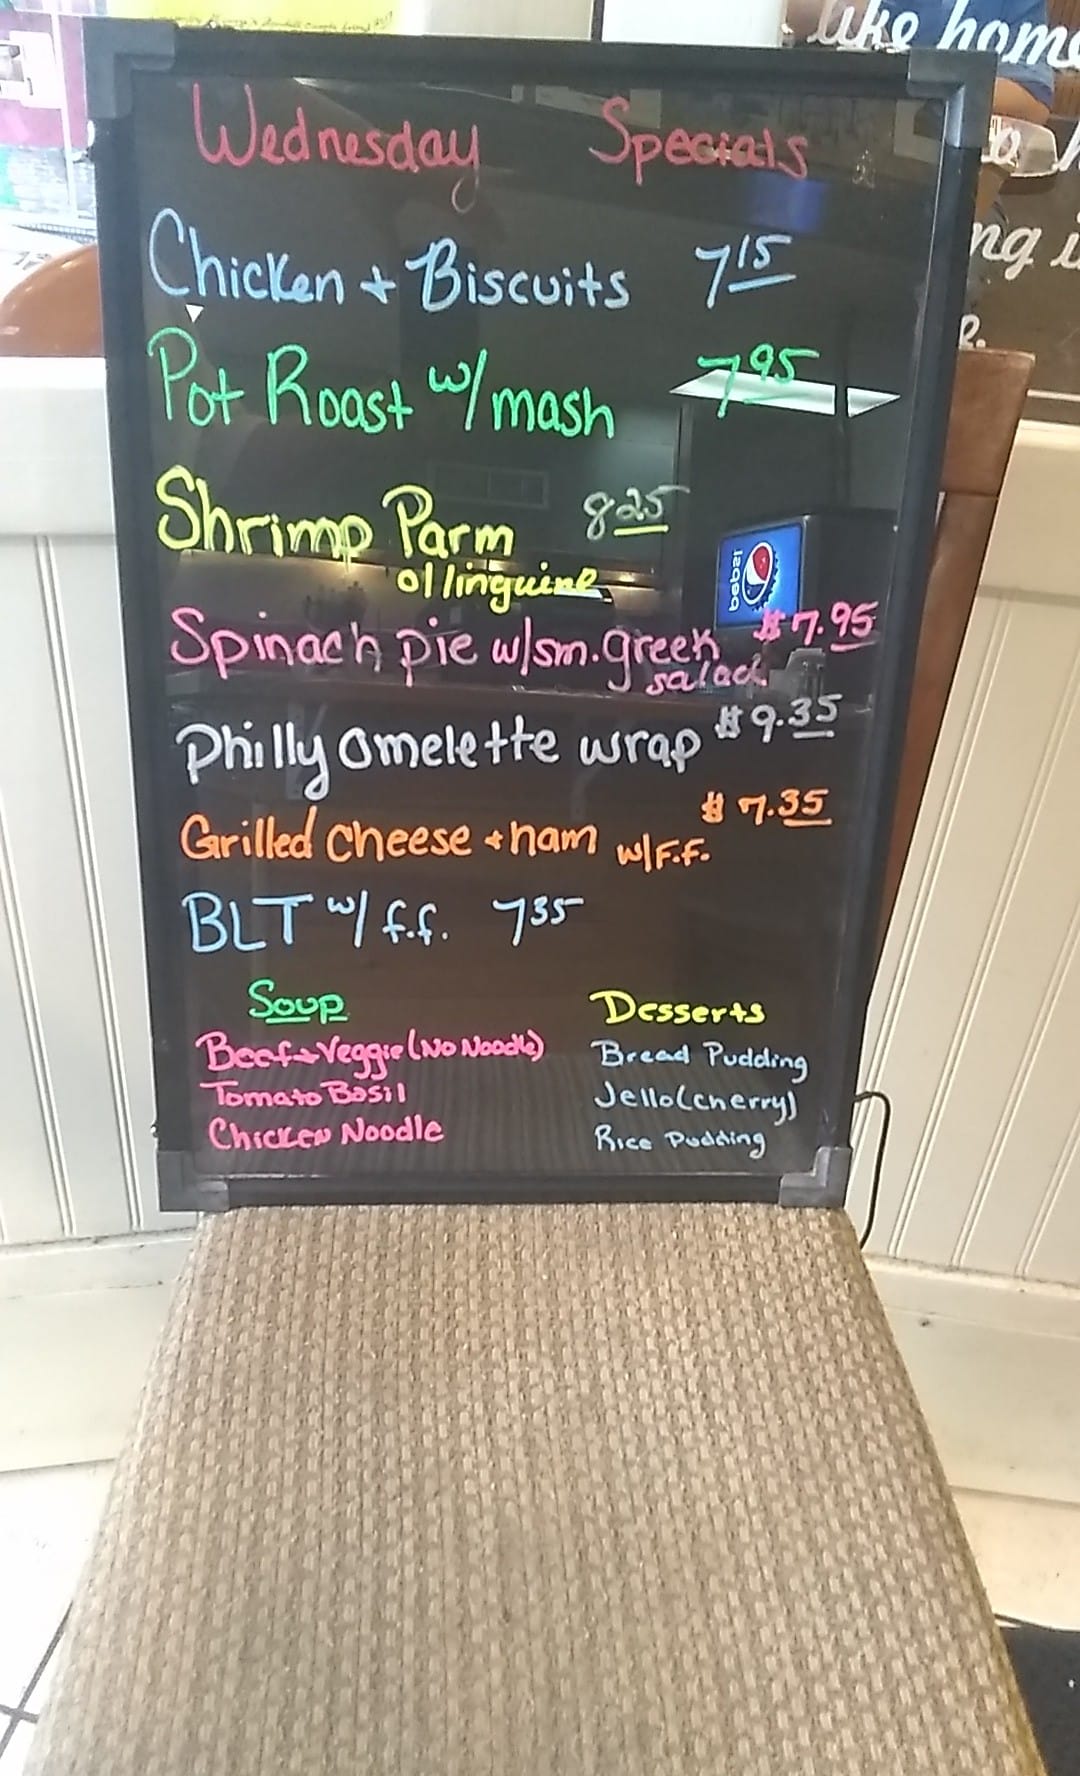 like home
ng i
Wednesday Specials
Chicken + Biscuits 7 15
Pot Roast w/ mash 7 95
Shrimp Parm 8 25
o/linguine
Spinach pie w/sm. greek $7.95
salad.
Philly omelette wrap $9.35
$7.35
Grilled cheese + ham w/F.F.
BLT w/ f.f. 7 35
pepsi
Soup
Beef + Veggie (No Noodle)
Tomato Basil
Chicken Noodle
Desserts
Bread Pudding
Jello (cherry)
Rice Pudding